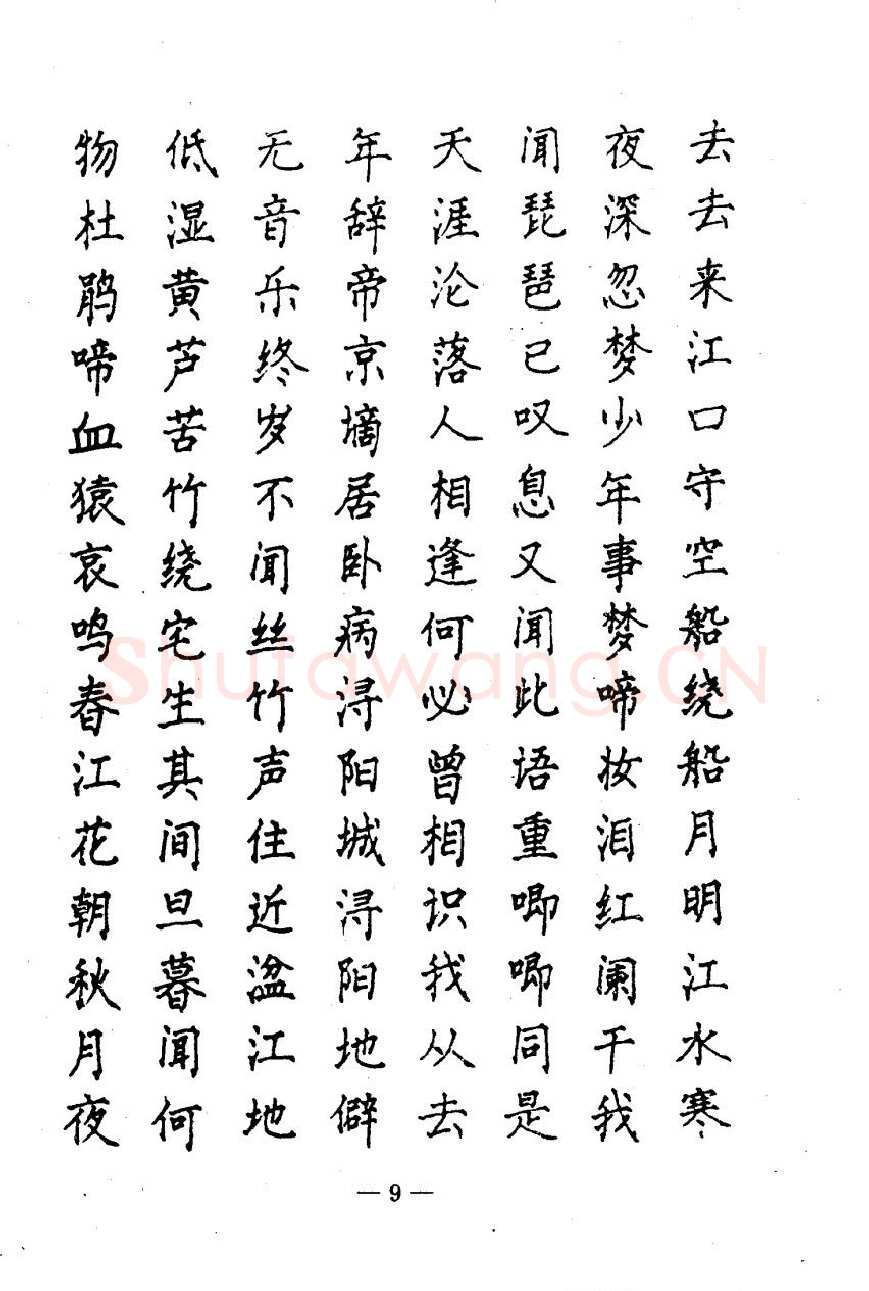 去去来江口守空船绕船月明江水寒
夜深忽梦少年事梦啼妆泪红阑干我
闻琵琶已叹息又闻此语重唧唧同是
天涯沦落人相逢何必曾相识我从去
年辞帝京墒居卧病浔阳城浔阳地僻
无音乐终岁不闻丝竹声住近湓江地
低湿黄芦苦竹绕宅生其间旦暮闻何
物杜鹃啼血猿哀鸣春江花朝秋月夜
Shufawang.CN
— 9 —